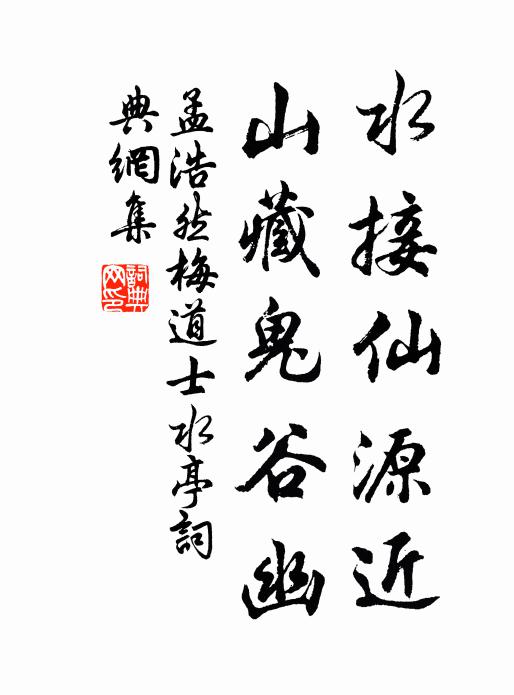 水接仙源近
山藏鬼谷幽
孟浩然梅道士水亭詞
典網集
詞典
网印